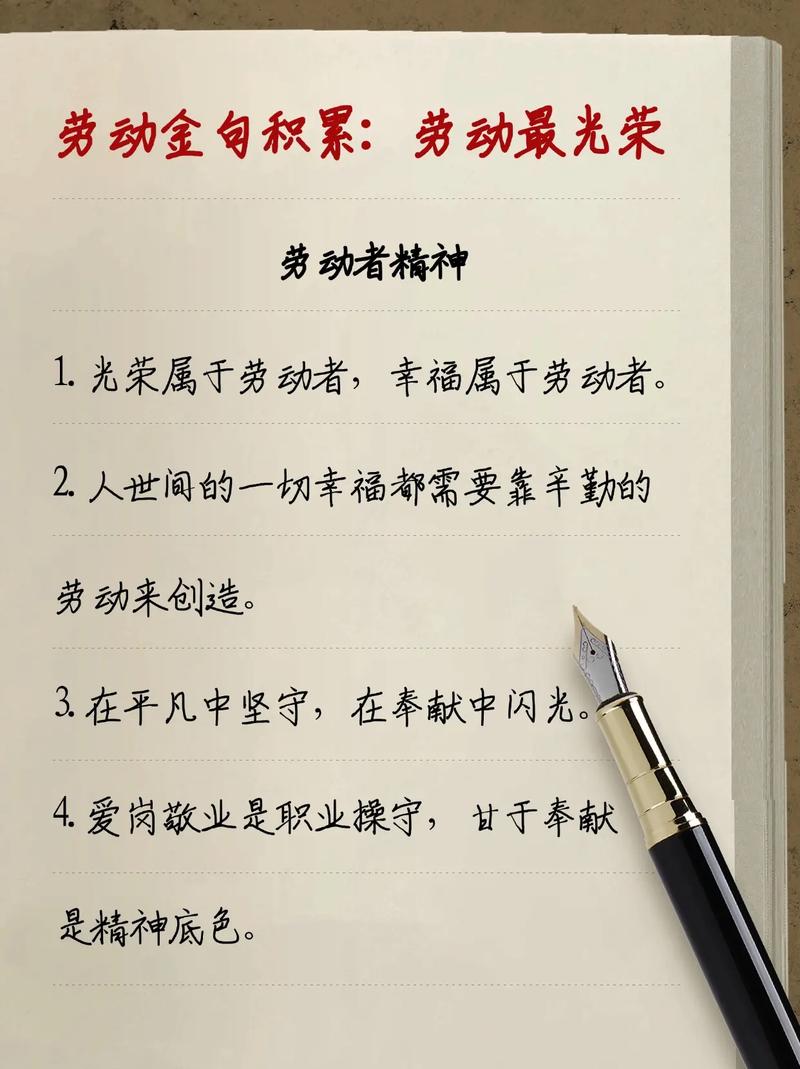 劳动金句积累：劳动最光荣
劳动者精神
1. 光荣属于劳动者，幸福属于劳动者。
2. 人世间的一切幸福都需要靠辛勤的
劳动来创造。
3. 在平凡中坚守，在奉献中闪光。
4. 爱岗敬业是职业操守，甘于奉献
是精神底色。